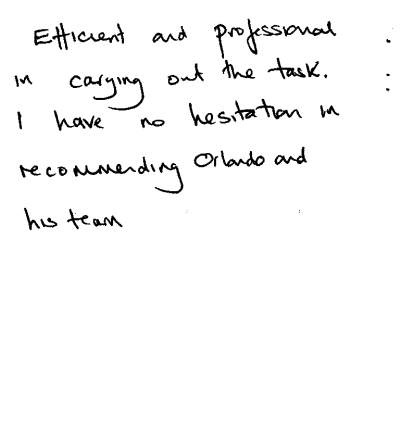 Efficient and professional
in carying out the task.
I have no hesitation in
recommending Orlando and
his team